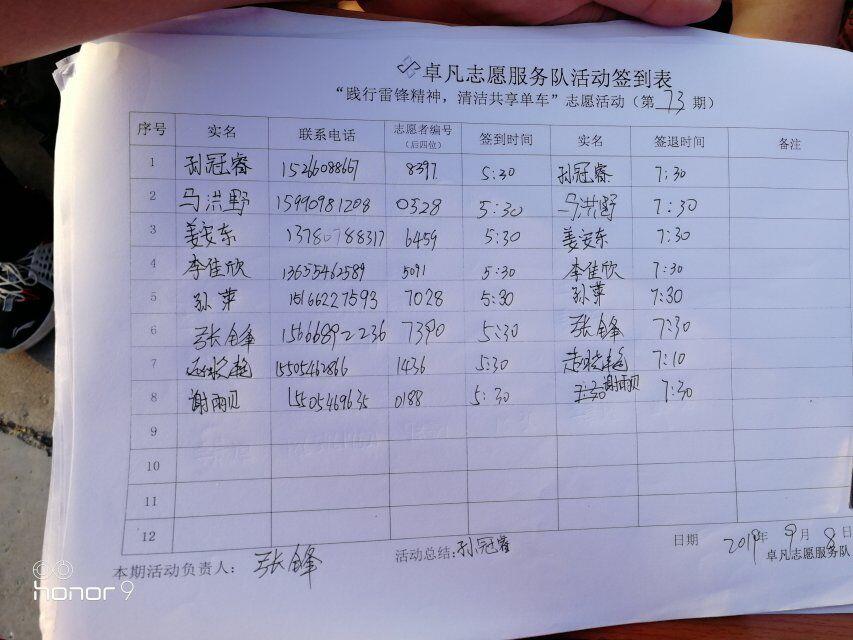 卓凡志愿服务队活动签到表
“践行雷锋精神，清洁共享单车”志愿活动（第 73 期）
序号 实名 联系电话 志愿者编号（后四位） 签到时间 实名 签退时间 备注
1 孙冠睿 15266088667 8397 5:30 孙冠睿 7:30
2 马洪野 15990981208 0528 5:30 马洪野 7:30
3 姜安东 13780788317 6459 5:30 姜安东 7:30
4 李佳欣 13655462589 5091 5:30 李佳欣 7:30
5 孙苹 15166227593 7028 5:30 孙苹 7:30
6 张锋 15666892236 7390 5:30 张锋 7:30
7 15505462866 1436 5:30 7:10
8 谢雨贝 15505469635 0188 5:30 谢雨贝 7:30
9
10
11
12
本期活动负责人： 张锋 活动总结: 孙冠睿 日期 2019年 9月 8日
卓凡志愿服务队
honor 9